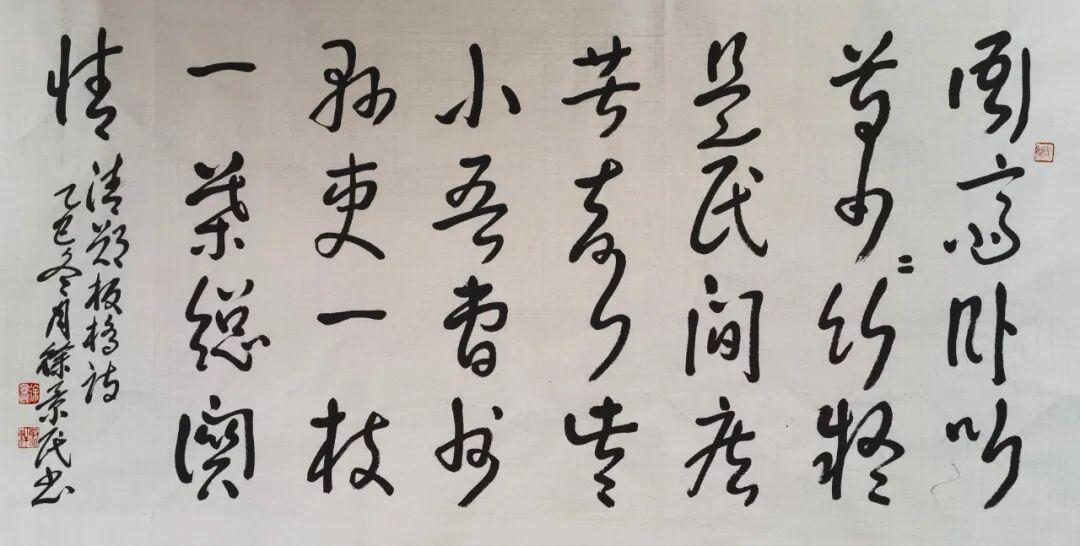 衙斋卧听
萧=竹疑
是民间疾
苦声些
小吾曹州
县吏一枝
一葉總関
情
清郑板桥诗
乙巳冬月徐景民书